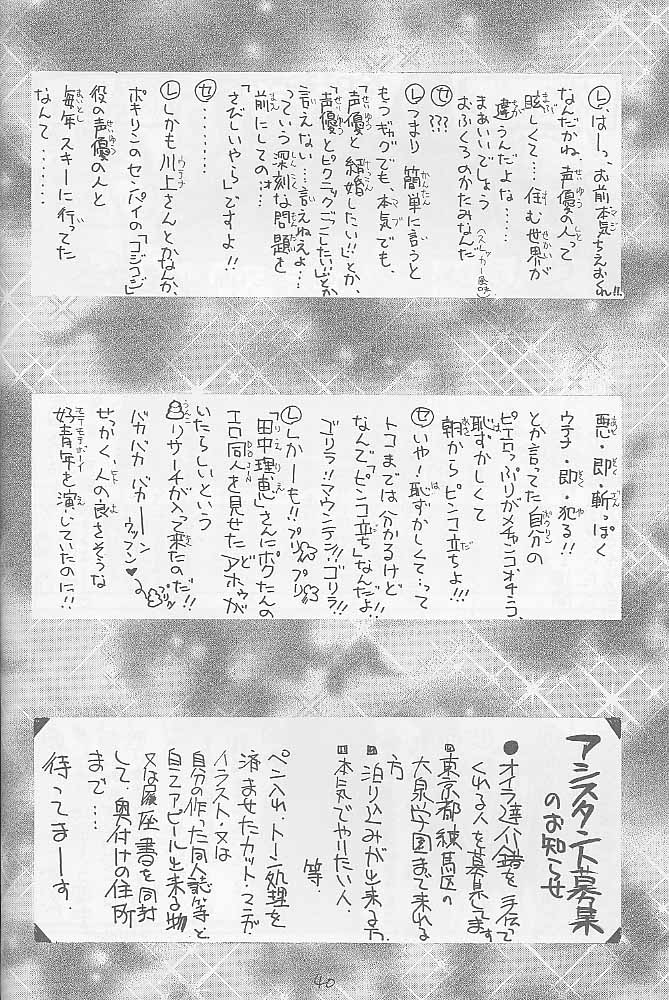 Ⓛ、はーっ、お前本気ちえおくれ!!
なんだかね、声優の人って
眩しくて…住む世界が
違うんだよな……
まあいいでしょう
おふくろのかたみなんだ
Ⓢ???
Ⓛつまり簡単に言うと
もつギグでも、本気でも、
「声優と結婚したい!!」とか、
「声優とピクニックごしたい!!」とか
言えない…言えねえよ…
っていう深刻な問題を
前にしてのォ…
「さびしいやら」ですよ!!
Ⓢ……
Ⓛしかも川上さんとかなんか、
ポキリンのセンパイの「コジコジ」
役の声優の人と
毎年スキーに行ってた
なんて………
悪・即・斬っぽく
ウ子・即・犯る!!
とか言ってた自分の
ピエロっぷりがメチャンコオチコ、
恥ずかしくて
朝からピンコ立ちよ!!!
Ⓢいや!恥ずかしくて…って
トコまでは分かるけど
なんで「ピンコ立ち」なんだよ!!
ゴリラ!!マウンテン!!ゴリラ!!
Ⓛしかーも!!プリプリ
「田中理恵」さんにボクたんの
エロ同人を見せたアホゥが
いたらしいという
リサーチが入って来たのだ!!
バカバカバカーン
ウッフン♥
せっかく、人の良さそうな
好青年を演じていたのに!!
アシスタント募集
のお知らせ
●オイラ達が錯を手伝って
くれる人を募集してます
■東京都練馬区の
大泉学園まで来れる
方
■泊り込みが出来る方
■本気でやりたい人、
等
ペン入れ、トーン処理を
済ませたカット・マンガ、
イラスト・又は
自分の作った同人誌等と
自己アピール出来る物
又は履歴書を同封
して、奥付けの住所
まで…
待ってまーす。
40